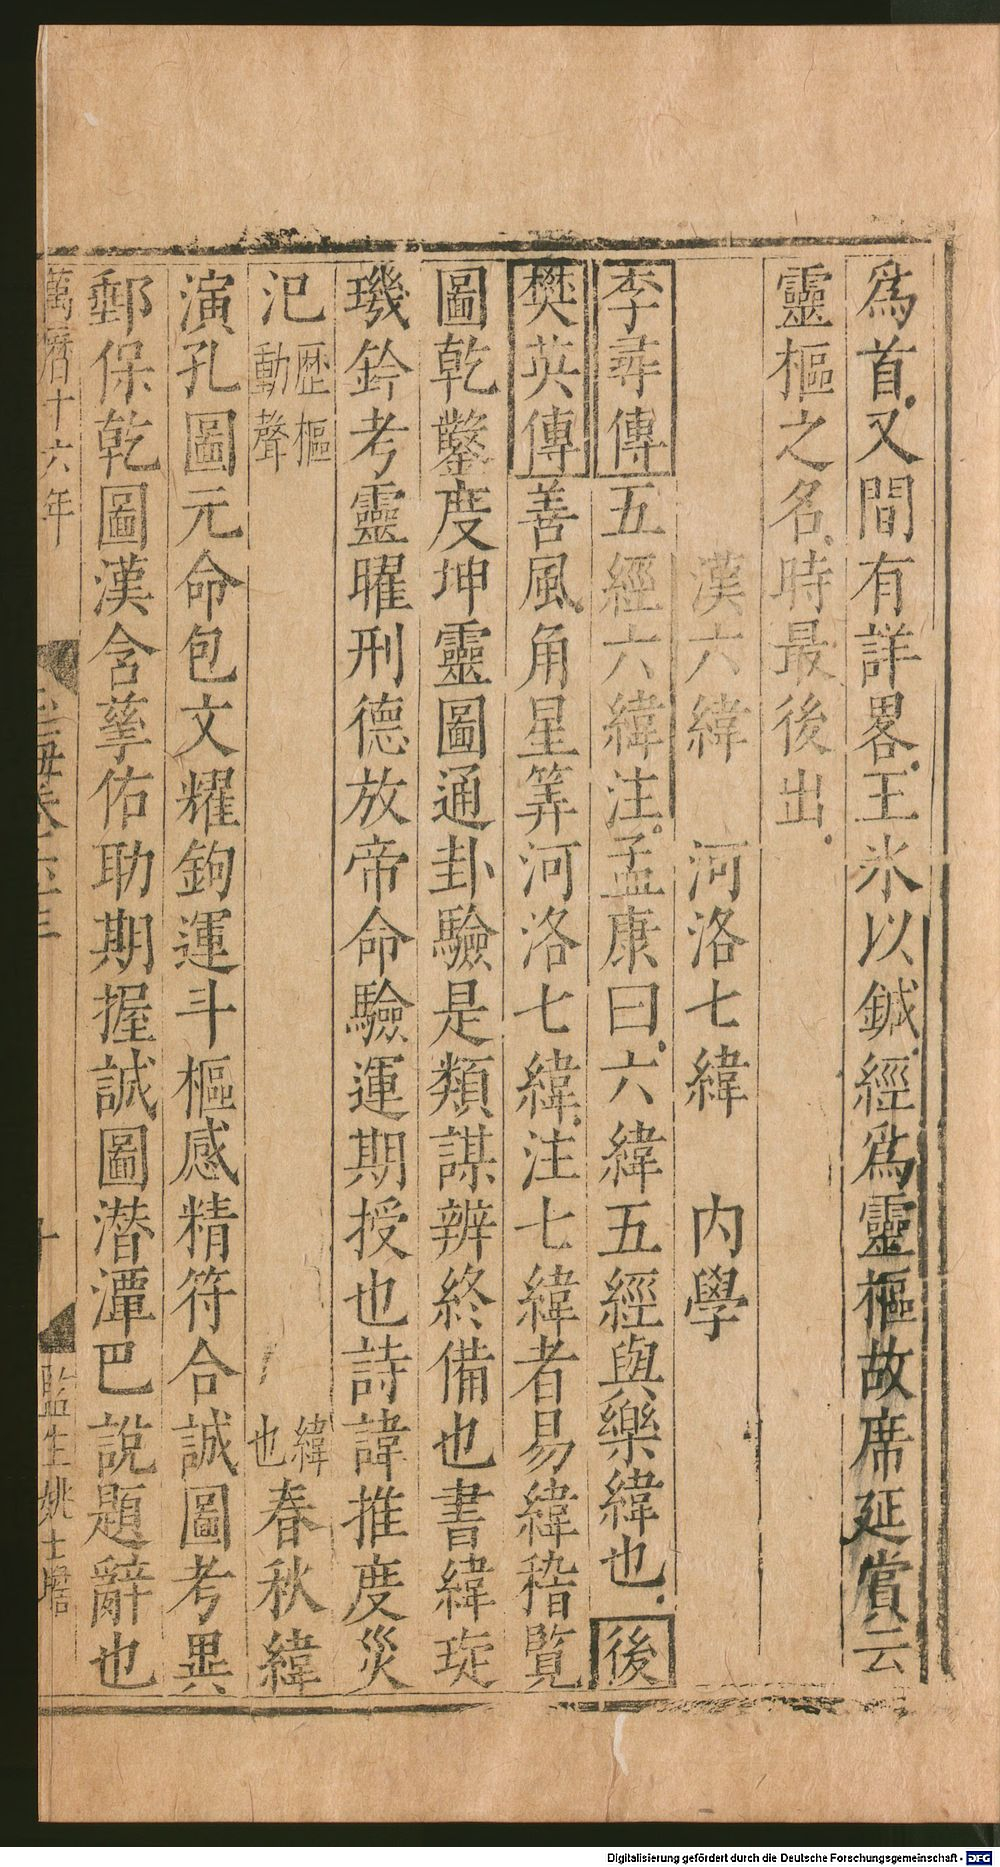 為首又間有詳畧王氷以鍼經為靈樞故席延賞云
靈樞之名時最後出
漢六緯 河洛七緯 内學
李尋傳五經六緯注孟康曰六緯五經與樂緯也後
樊英傳善風角星筭河洛七緯注七緯者易緯稽覧
圖乾鑿度坤靈圖通卦驗是類謀辨終備也書緯琁
璣鈐考靈曜刑德放帝命驗運期授也詩諱推度災
氾歷樞
動聲
緯
也春秋緯
演孔圖元命包文耀鉤運斗樞感精符合誠圖考異
郵保乾圖漢含孳佑助期握誠圖潜潭巴說題辭也
萬曆十六年
十
監生姚士
Digitalisierung gefördert durch die Deutsche Forschungsgemeinschaft - DFG